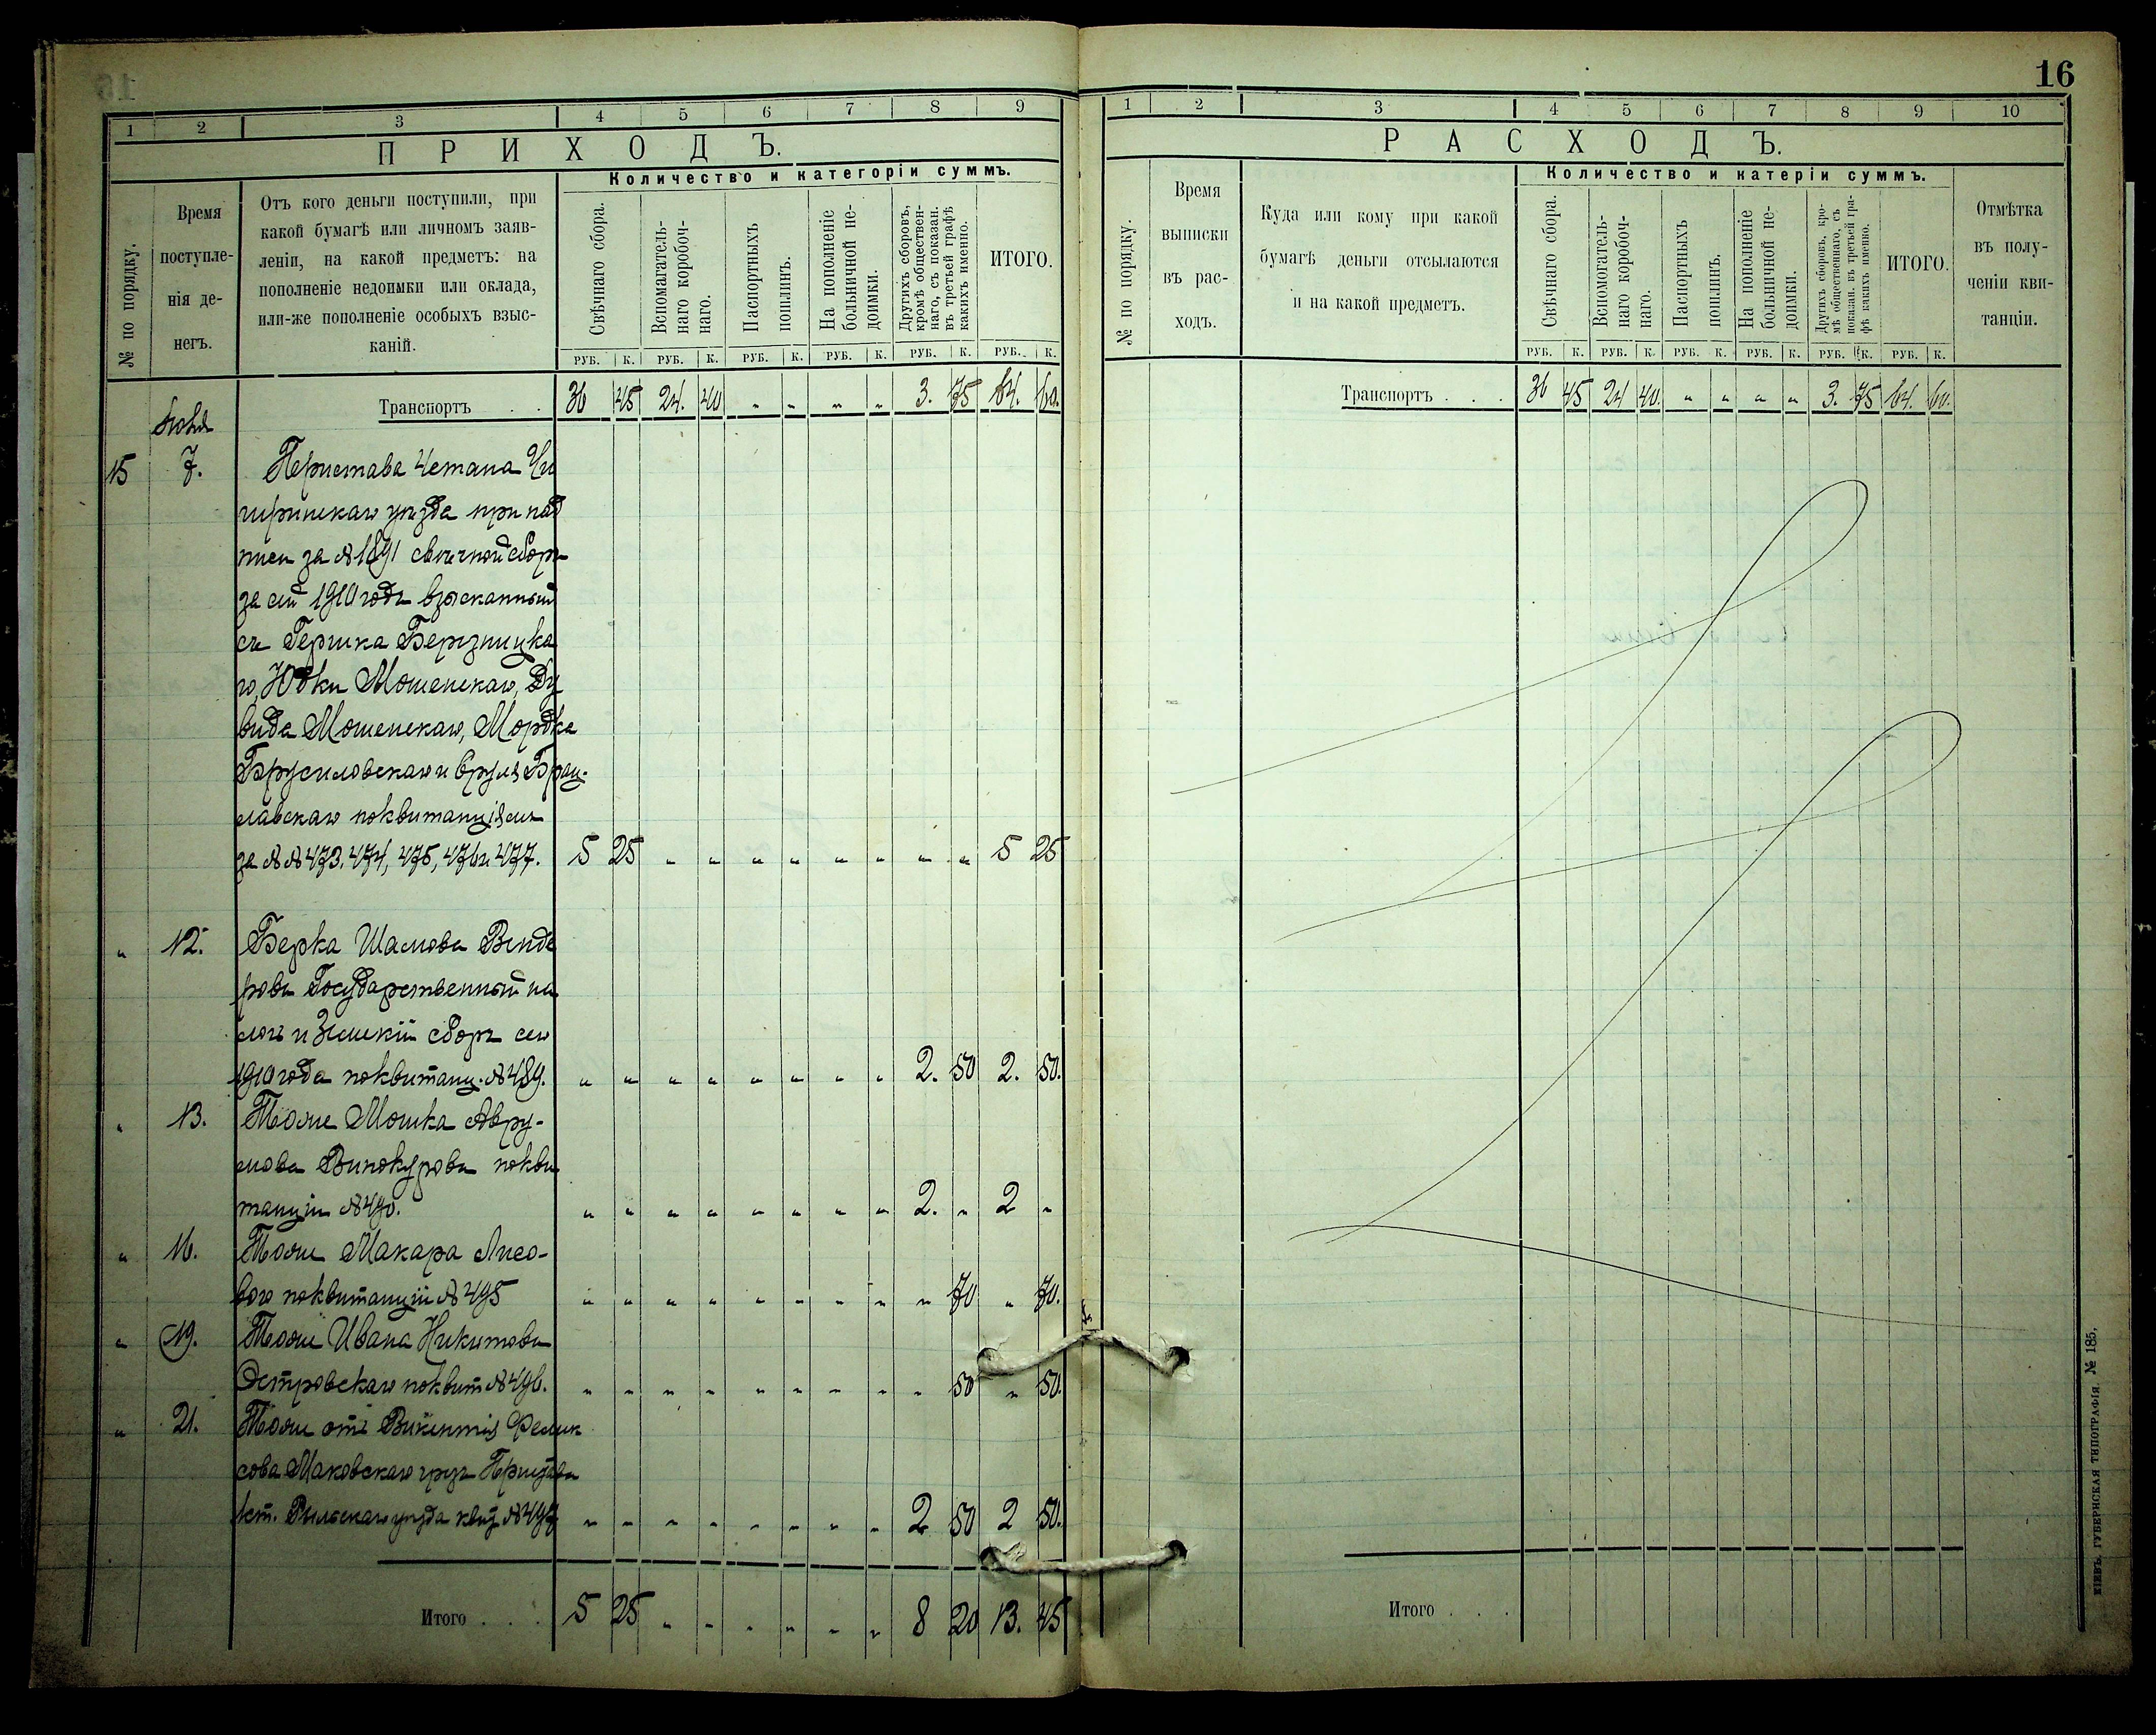 16
1 2 3 4 5 6 7 8 9
ПРИХОДЪ.
№ по порядку.
Время
поступле-
нія де-
негъ.
Отъ кого деньги поступили, при
какой бумагѣ или личномъ заяв-
леніи, на какой предметъ: на
пополненіе недоимки или оклада,
или-же пополненіе особыхъ взыс-
каній.
Количество и категоріи суммъ.
Свѣчнаго сбора.
Вспомагатель-
наго коробоч-
наго.
Паспортныхъ
пошлинъ.
На пополненіе
больничной не-
доимки.
Другихъ сборовъ,
кромѣ обществен-
наго, съ показан.
въ третьей графѣ
какихъ именно.
ИТОГО.
РУБ. К. РУБ. К. РУБ. К. РУБ. К. РУБ. К. РУБ. К.
Транспортъ . . 36 45 24. 40 „ „ „ „ 3. 75 64. 60.
15 7.
за № 1891 свѣчной сборъ
за сей 1910 годъ взысканный
съ Гершка
го, Юдки Мошенскаго, Ду
вида Мошенскаго, Мордка
Брусиловскаго и Сруля Брац-
лавскаго по квитанціямъ
за №№ 473, 474, 475, 476 и 477. 5 25 „ „ „ „ „ „ „ „ 5 25
„ 12. Берка
рова Государственный на
логъ и Земскій сборъ сего
1910 года по квитанц. № 489. „ „ „ „ „ „ „ „ 2. 50 2. 50.
„ 13. Тоже Мошка Авру-
мова Винокурова по кви
танціи № 490. „ „ „ „ „ „ „ „ 2. „ 2 „
„ 16. Тоже Макара Лисо-
вого по квитанціи № 495 „ „ „ „ „ „ „ „ „ 70 „ 70.
„ 19. Тоже Ивана Никитова
Островскаго по квит № 496. „ „ „ „ „ „ „ „ „ 50 „ 50.
„ 21. Тоже отъ Викентія Феликсова
Маковскаго чрезъ Пристава
уѣзда „ „ „ „ „ „ „ „ 2 50 2 50.
Итого . . . 5 25 „ „ „ „ „ „ 8 20 13. 45
1 2 3 4 5 6 7 8 9 10
РАСХОДЪ.
№ по порядку.
Время
выписки
въ рас-
ходъ.
Куда или кому при какой
бумагѣ деньги отсылаются
и на какой предметъ.
Количество и катеріи суммъ.
Свѣчнаго сбора.
Вспомогатель-
наго коробоч-
наго.
Паспортныхъ
пошлинъ.
На пополненіе
больничной не-
доимки.
Другихъ сборовъ, кро-
мѣ общественнаго, съ
показан. въ третьей гра-
фѣ какихъ именно.
ИТОГО.
Отмѣтка
въ полу-
ченіи кви-
танціи.
РУБ. К. РУБ. К. РУБ. К. РУБ. К. РУБ. К. РУБ. К.
Транспортъ . . . 36 45 24 40. „ „ „ „ 3. 75 64. 60.
Итого . . .
КІЕВЪ, ГУБЕРНСКАЯ ТИПОГРАФІЯ. № 185.